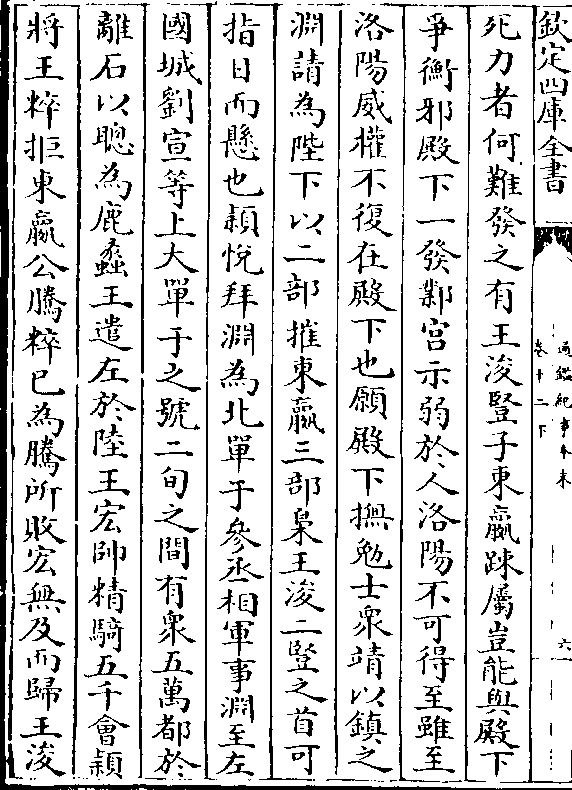 欽定四庫全書
通鑑紀事本末
卷十二下
六
死力者何難發之有王浚豎子東嬴踈屬豈能與殿下
爭衡邪殿下一發鄴宫示弱於人洛陽不可得至雖至
洛陽威權不復在殿下也願殿下撫勉士衆靖以鎮之
淵請為陛下以二部摧東嬴三部梟王浚二豎之首可
指日而懸也頴悅拜淵為北單于參丞相軍事淵至左
國城劉宣等上大單于之號二旬之間有衆五萬都於
離石以聰為鹿蠡王遣左於陸王宏帥精騎五千會頴
將王粹拒東嬴公騰粹已為騰所敗宏無及而歸王浚